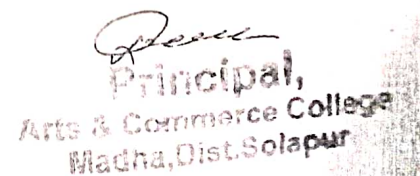 Principal,
Arts & Commerce College
Madha,Dist.Solapur